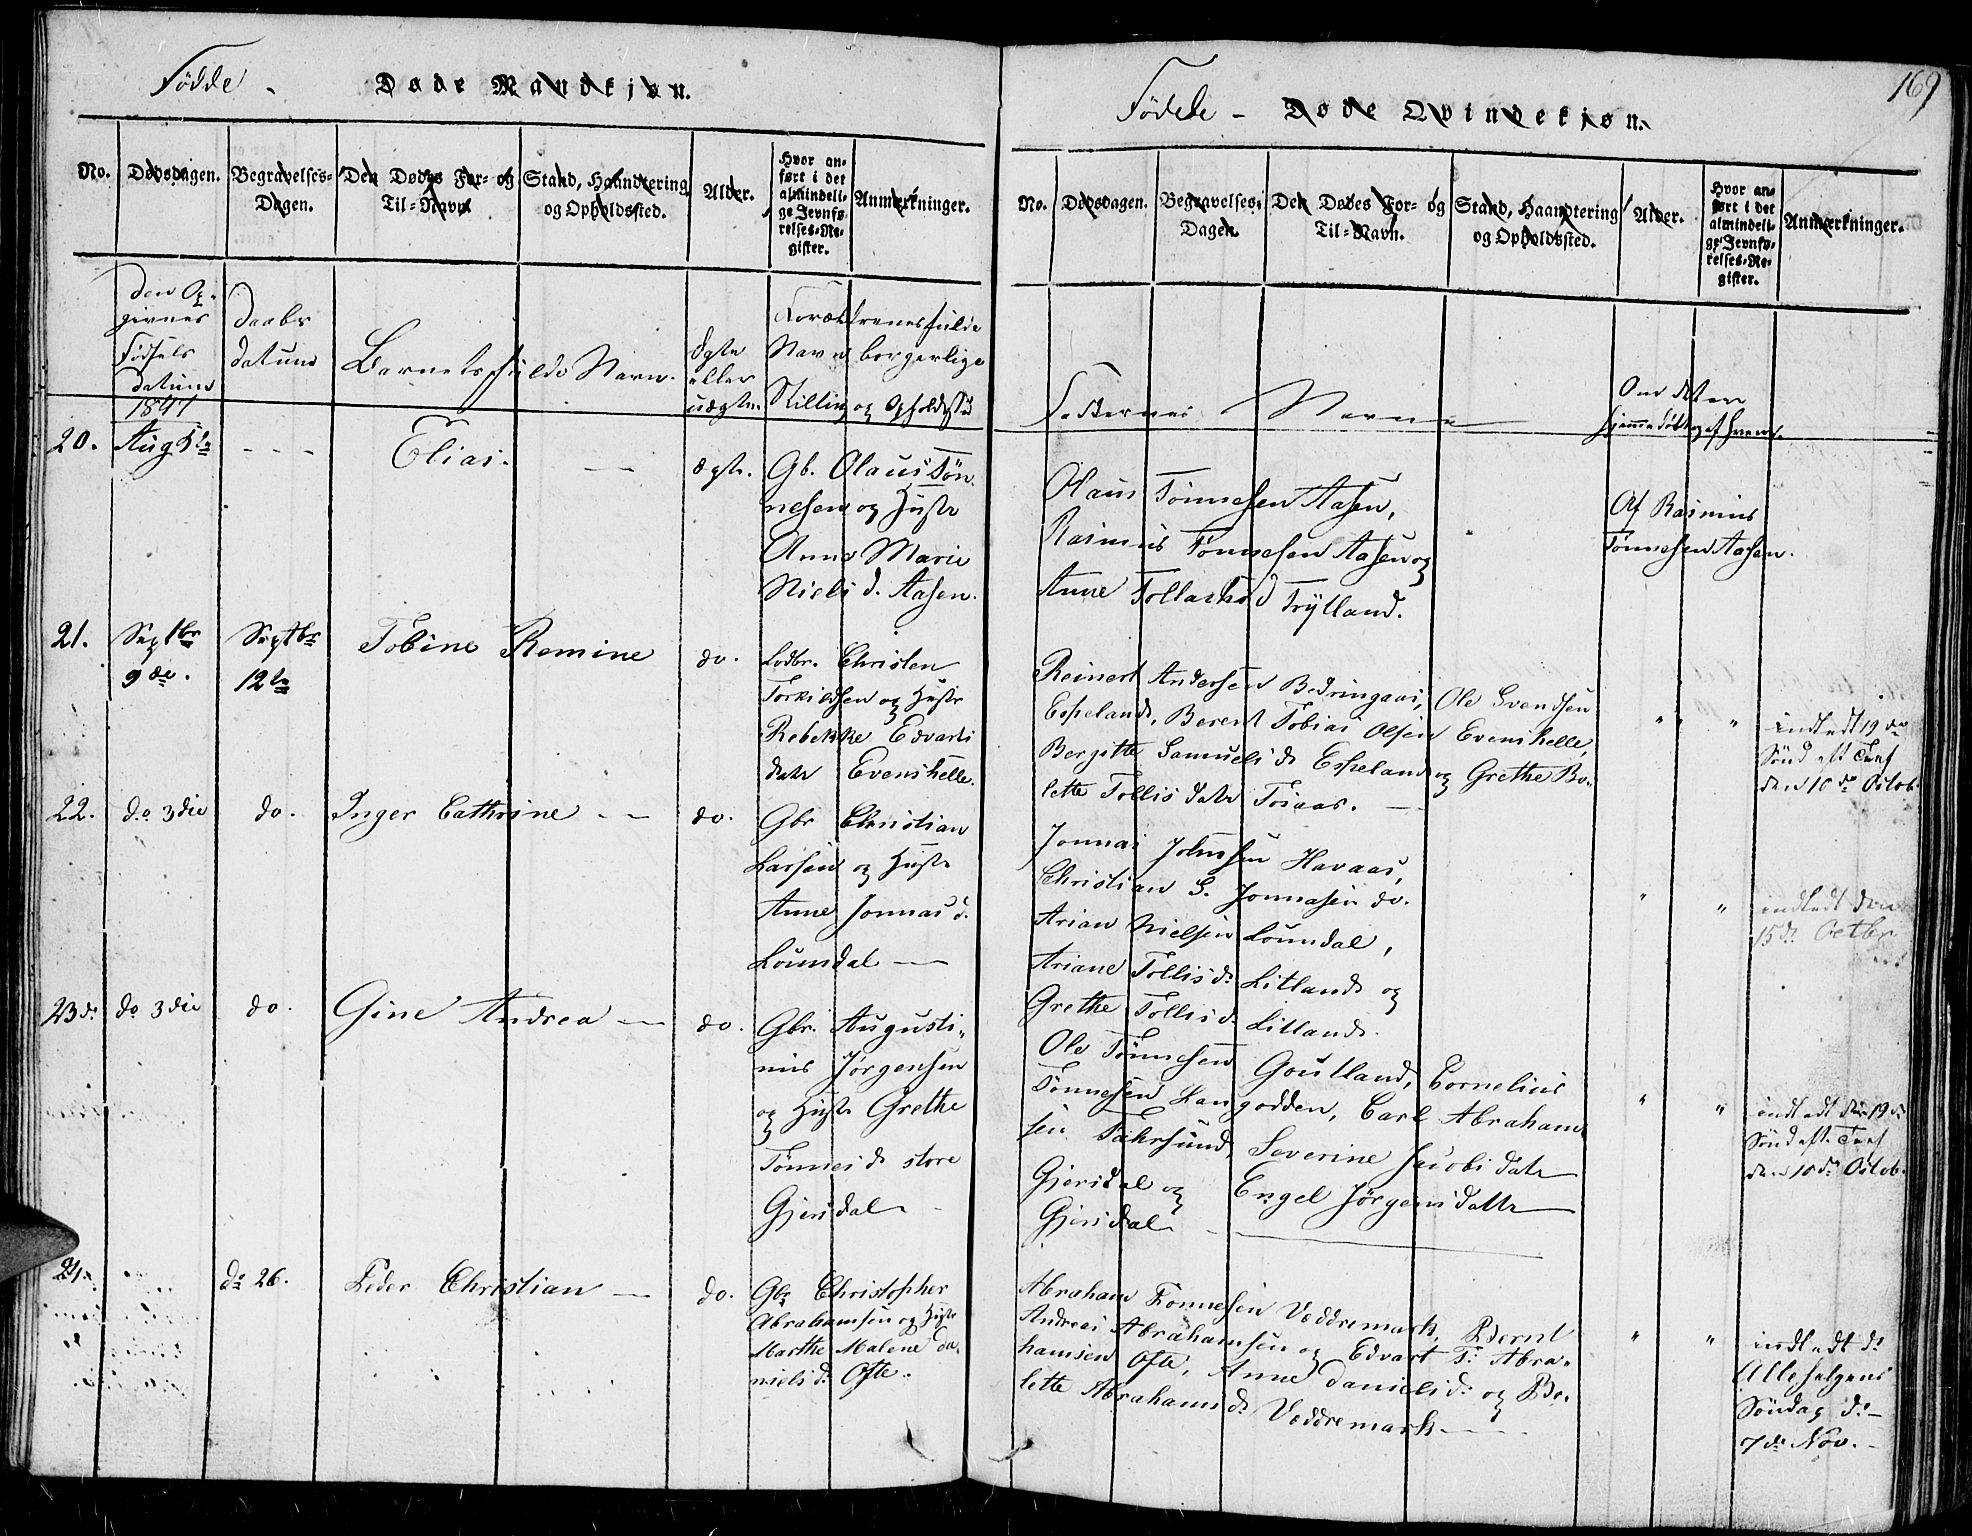 Fødde - Døde Mandkjøn.
No. Dødsdagen. Begravelses-Dagen. Den Dødes For- og Til-Navn. Stand, Haandtering og Opholdssted. Alder. Hvor anført i det almindelige Jevnførelses-Register. Anmærkninger.
den Op-
givnes
Fødsels
datum
1847
Daabs
datum
Barnets fulde Navn.
ægte
eller
uægte.
Forældrenes fulde
Navn borgerlige
Stilling og Opholdssted
20. Aug 5te - - - Elias. — ægte. Gb. Olaus Tøn-
nesen og Hustr
Anna Marie
Niels d. Aasen.
21. Septbr 9de. Septbr 12te Tobine Romine do. Lodbr. Christen
Torkildsen og Hustr
Rebekke Edvarts
datr Evenshelle.
22. do 3die do. Inger Cathrine - — do. Gbr Christian
Larsen og Hustr
Anne Jonnas d.
Loundal —
23de do 3die do. Gine Andrea — do. Gbr. Augusti-
nus Jørgensen
og Hustr Grethe
Tønnes d. store
Gjersdal -
24. do 26. Peder Christian — do. Gbr Christopher
Abrahamsen og Hustr
Marthe Malene Da-
niels d. Ofte.
169
Fødde - Døde Qvindekjøn.
No. Dødsdagen. Begravelses-Dagen. Den Dødes For- og Til-Navn. Stand, Haandtering og Opholdssted. Alder. Hvor anført i det almindelige Jevnførelses-Register. Anmærkninger.
Faddernes Navne
Om det er
hjemmedøbt og af hvem.
Olaus Tønnesen Aasen,
Rasmus Tønnesen Aasen og
Anne Tollachsd Frøtland.
Af Rasmus
Tønnesen Aasen.
Reinert Andersen Bedringaas, Ole Svendsen
Espeland, Berent Tobias Olsen Evenshelle,
Bergitte Samuels d. Espeland og Grethe Bo-
lette Tollis datr Tosaas. —
" " indledt 19de
Sønd eft Tref
den 10de Octob.
Jonnas Johnsen Havaas,
Christian S. Jonnasen do.
Arian Nielsen Loundal,
Ariane Tollis d. Litland og
Grethe Tollis d. Litland.
" " indledt den
15de Octbr
Ole Tønnesen Goutland, Cornelius
Tønnesen Langodden, Carl Abraham-
sen Fahrsund Severine Jacobs datr
Gjersdal og Engel Jørgens datter
Gjersdal
" " indledt den 19de
Sønd eft Tref
den 10de Octob.
Abraham Tønnesen Væddremark, Bernt
Andreas Abrahamsen og Edvart T. Abra-
hamsen Ofte, Anne Daniels d. og Bo-
lette Abrahams d. Væddremark - - -
" " indledt d.
Allehelgens
Søndag d. -
7de Nov. -